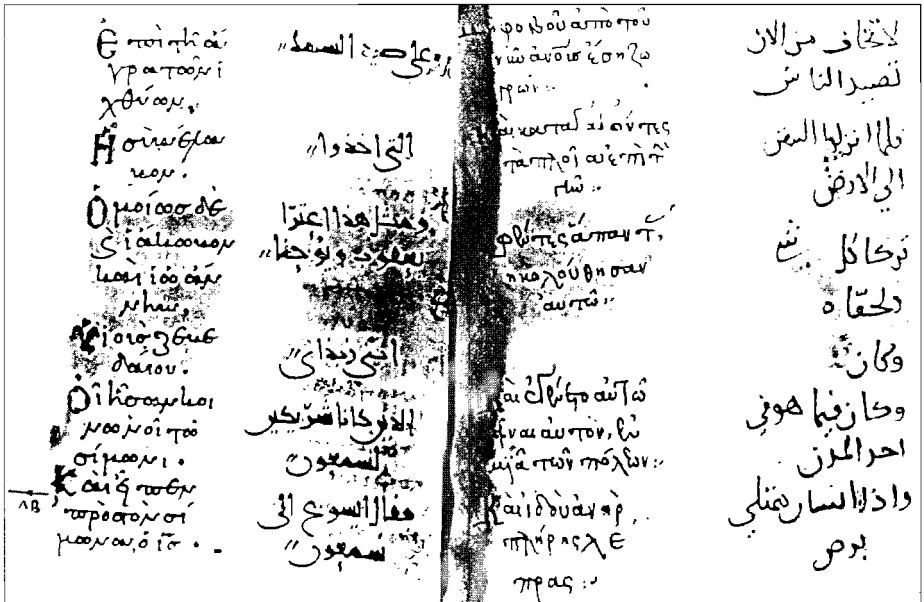 Ἐπὶ τῆ ἄ
γρα τῶν ἰ
χθύων,
Ἧ συνέλα
βον.
Ὁμοίως δὲ
ϗ ἰάκωβον
καὶ ἰωάν
νην,
Υἱοὺς ζεβε
δαίου.
Οἳ ἦσαν κοι
νωνοὶ τῶ
σίμωνι.
Καὶ εἶπεν
πρὸς τὸν σί
μωνα, ὁ ις.
ΛΒ
على صيد السمك
التي اخذوا
ومثل هذا اعترا
يعقوب ويوحنا
ابني زبدى
الذين كانا شريكين
لشمعون
فقال السوع الى
شمعون
Μὴ φοβοῦ ἀπὸ τοῦ
νῦν ἀνους ἔση ζω
γρῶν :
Καὶ καταγαγόντες
τὰ πλοῖα ἐπὶ τὴν
γῆν :
ἀφέντες ἅπαντα,
ἠκολούθησαν
αὐτῶ :
Καὶ ἐγένετο ἐν τῶ
εἶναι αὐτὸν, ἐν
μιᾶ τῶν πόλεων :
Καὶ ἰδοὺ ἀνὴρ
πλήρης λέ
πρας :
لا تخاف من الان
تصيد الناس
فلما انزلوا السفن
الي الارض
تركا كل شي
ولحقاه
وكان
وكان فيما هو في
احد المدن
واذا انسان ممتلي
برص